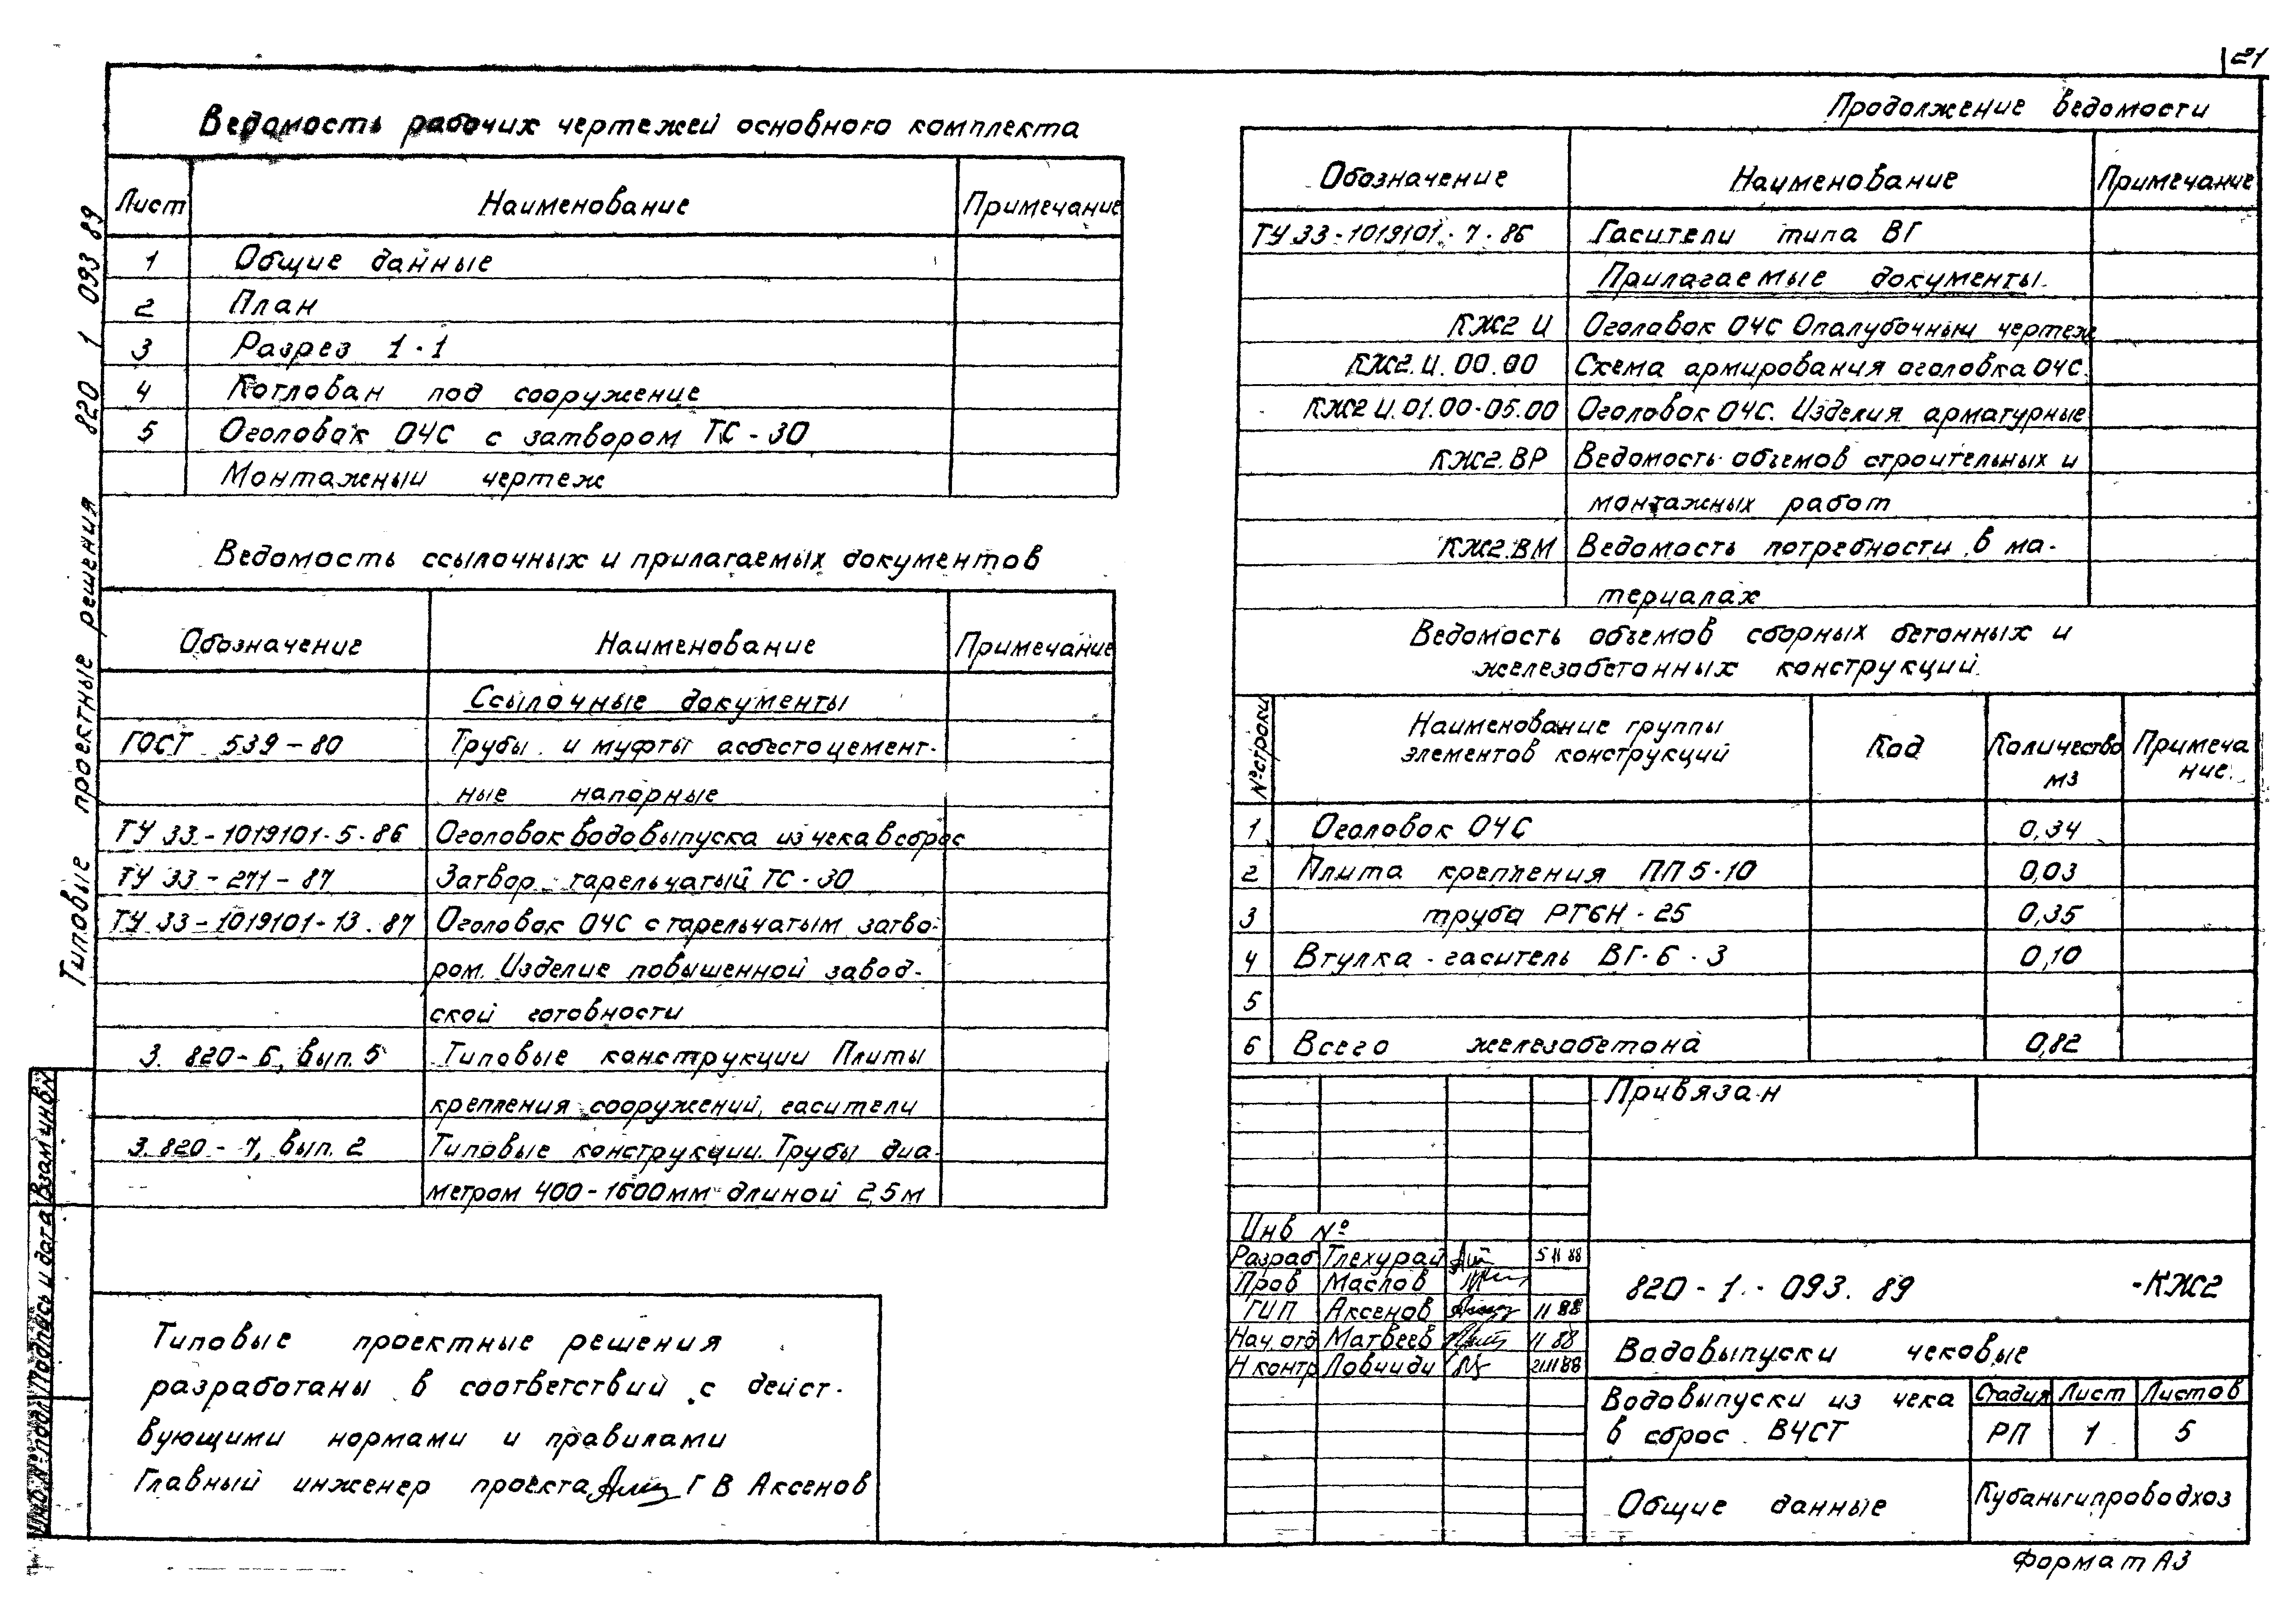 21
Типовые проектные решения 820 1 093 89
Ведомость рабочих чертежей основного комплекта
Лист Наименование Примечание
1 Общие данные
2 План
3 Разрез 1-1
4 Котлован под сооружение
5 Оголовок ОЧС с затвором ТС-30
Монтажный чертеж
Ведомость ссылочных и прилагаемых документов
Обозначение Наименование Примечание
Ссылочные документы
ГОСТ 539-80 Трубы и муфты асбестоцемент-
ные напорные
ТУ 33-1019101-5-86 Оголовок водовыпуска из чека в сброс
ТУ 33-271-87 Затвор тарельчатый ТС-30
ТУ 33-1019101-13.87 Оголовок ОЧС с тарельчатым затво-
ром. Изделие повышенной завод-
ской готовности
3.820-6, вып. 5 Типовые конструкции Плиты
крепления сооружений, гасители
3.820-7, вып. 2 Типовые конструкции. Трубы диа-
метром 400-1600мм длиной 2,5м
Типовые проектные решения
разработаны в соответствий с дейст-
вующими нормами и правилами
Главный инженер проекта Г В Аксенов
Взам инв N
Подпись и дата
Инв. № подл
Продолжение ведомости
Обозначение Наименование Примечание
ТУ 33-1019101-7-86 Гасители типа ВГ
Прилагаемые документы.
КЖ2 И Оголовок ОЧС Опалубочный чертеж
КЖ2.И.00.00 Схема армирования оголовка ОЧС.
КЖ2 И.01.00-05.00 Оголовок ОЧС. Изделия арматурные
КЖ2.ВР Ведомость объемов строительных и
монтажных работ
КЖ2.ВМ Ведомость потребности в ма-
териалах
Ведомость объемов сборных бетонных и
железобетонных конструкций.
№ строки Наименование группы элементов конструкций Код Количество м3 Примечание
1 Оголовок ОЧС 0,34
2 Плита крепления ПП5-10 0,03
3 труба РТ6Н-25 0,35
4 Втулка-гаситель ВГ-6-3 0,10
5
6 Всего железобетона 0,82
Привязан
Инв №
Разраб Тлехурай 5 11 88
Пров Маслов
ГИП Аксенов 11 88
Нач. отд Матвеев 11 88
Н контр 21.11 88
820-1-093.89 -КЖ2
Водовыпуски чековые
Водовыпуски из чека
в сброс ВЧСТ
Стадия Лист Листов
РП 1 5
Общие данные
Кубаньгипроводхоз
Формат А3